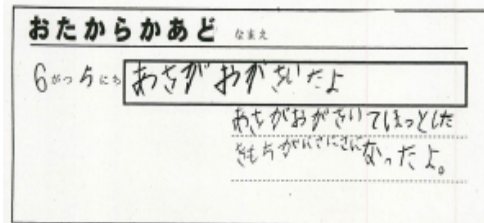 おたからかあど なまえ
6がつ5にち あさがおがさいたよ
あさがおがさいてほっとした
きもちがにこにこになったよ。